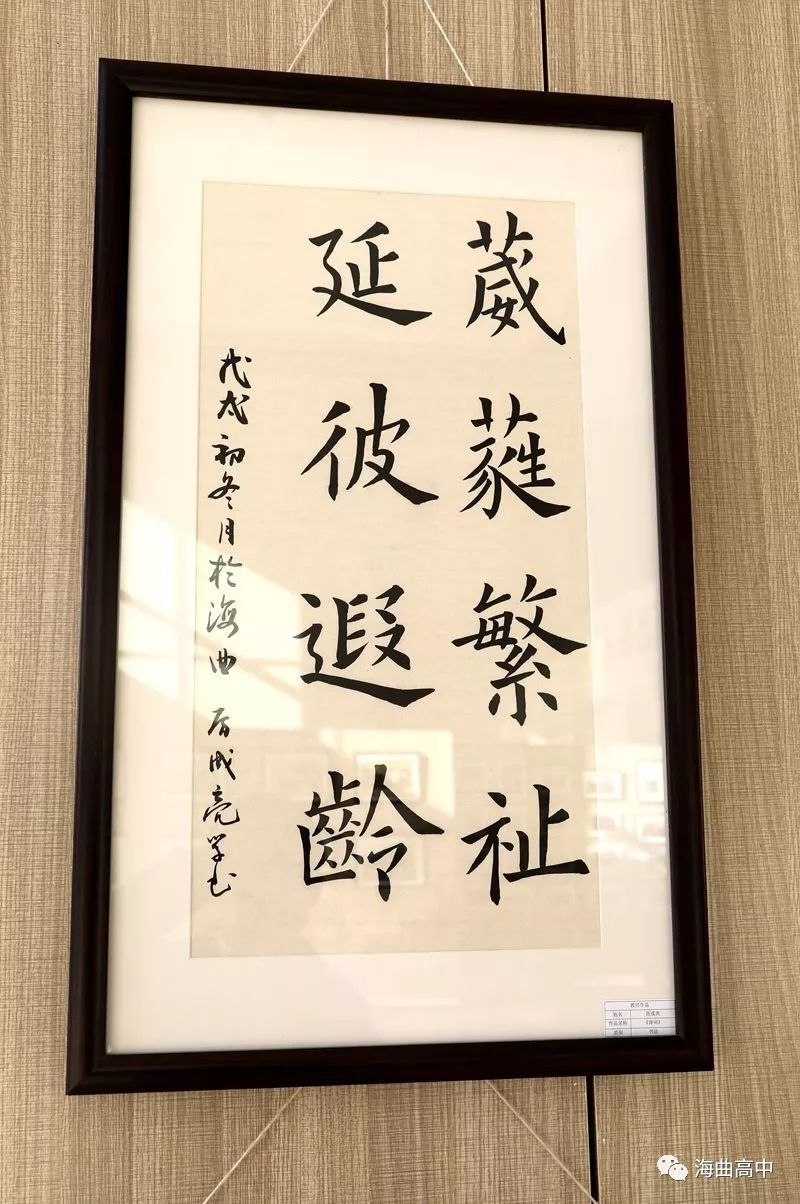 葳蕤繁祉
延彼遐齡
戊戌初冬月於海曲 厉成亮学书
教师作品
姓名 厉成亮
作品名称 《诗词》
类别 书法
海曲高中